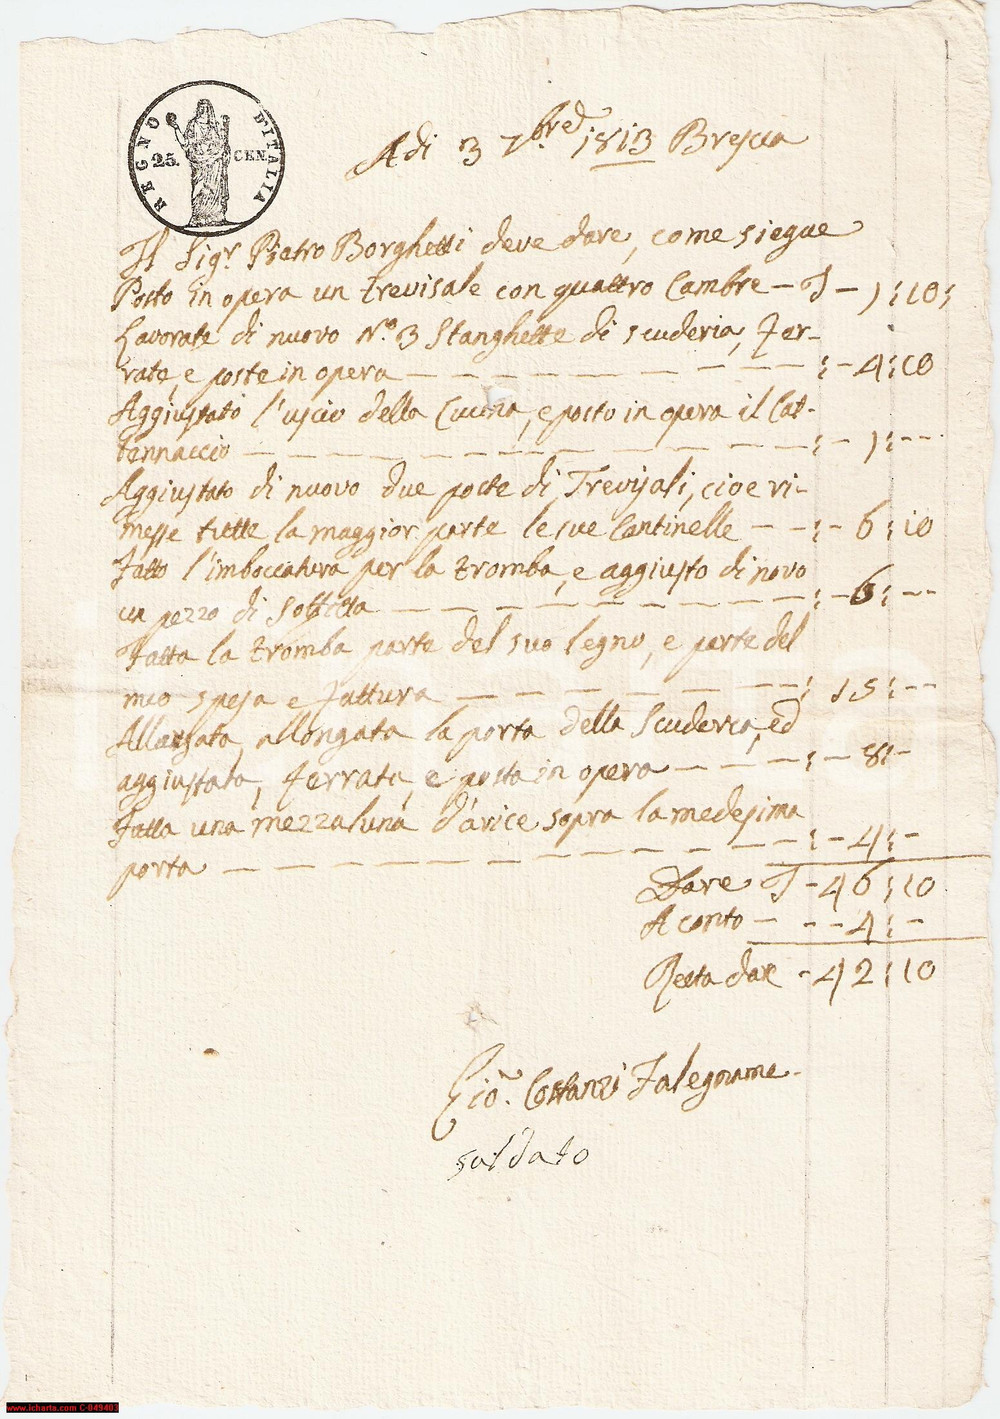 REGNO D'ITALIA
25. CEN.
Adi 3 7bre 1813 Brescia
Il Sigr. Pietro Borghetti deve dare, come siegue
Posto in opera un trevisale con quattro Cambre — — 1:10:
Lavorate di nuovo No. 3 Stanghette di scuderia, fer-
rate, e poste in opera — — — — — :- 4:10
Aggiustato l'uscio della Cucina, e posto in opera il Cat-
tennaccio — — — — — :- 1:--
Aggiustato di nuovo due poste di Trevisali, cioe ri-
messe tutte la maggior parte le sue Cantinelle — — :- 6:10
Fatto l'imboccatura per la tromba, e aggiusto di novo
un pezzo di Soffitta — — — — — :- 6:--
Fatta la tromba parte del suo legno, e parte del
mio spesa e fattura — — — — — : 15:--
Allargata, allongata la porta della Scuderia, ed
aggiustata, ferrata, e posta in opera — — — — :- 8:-
Fatta una mezzaluna d'arice sopra la medesima
porta — — — — — :- 4:-
Dare - 46:10
A conto — - - - 4:-
Resta dare - 42:10
Gio. Costanzi Falegname.
saldato
www.icharta.com C-049403